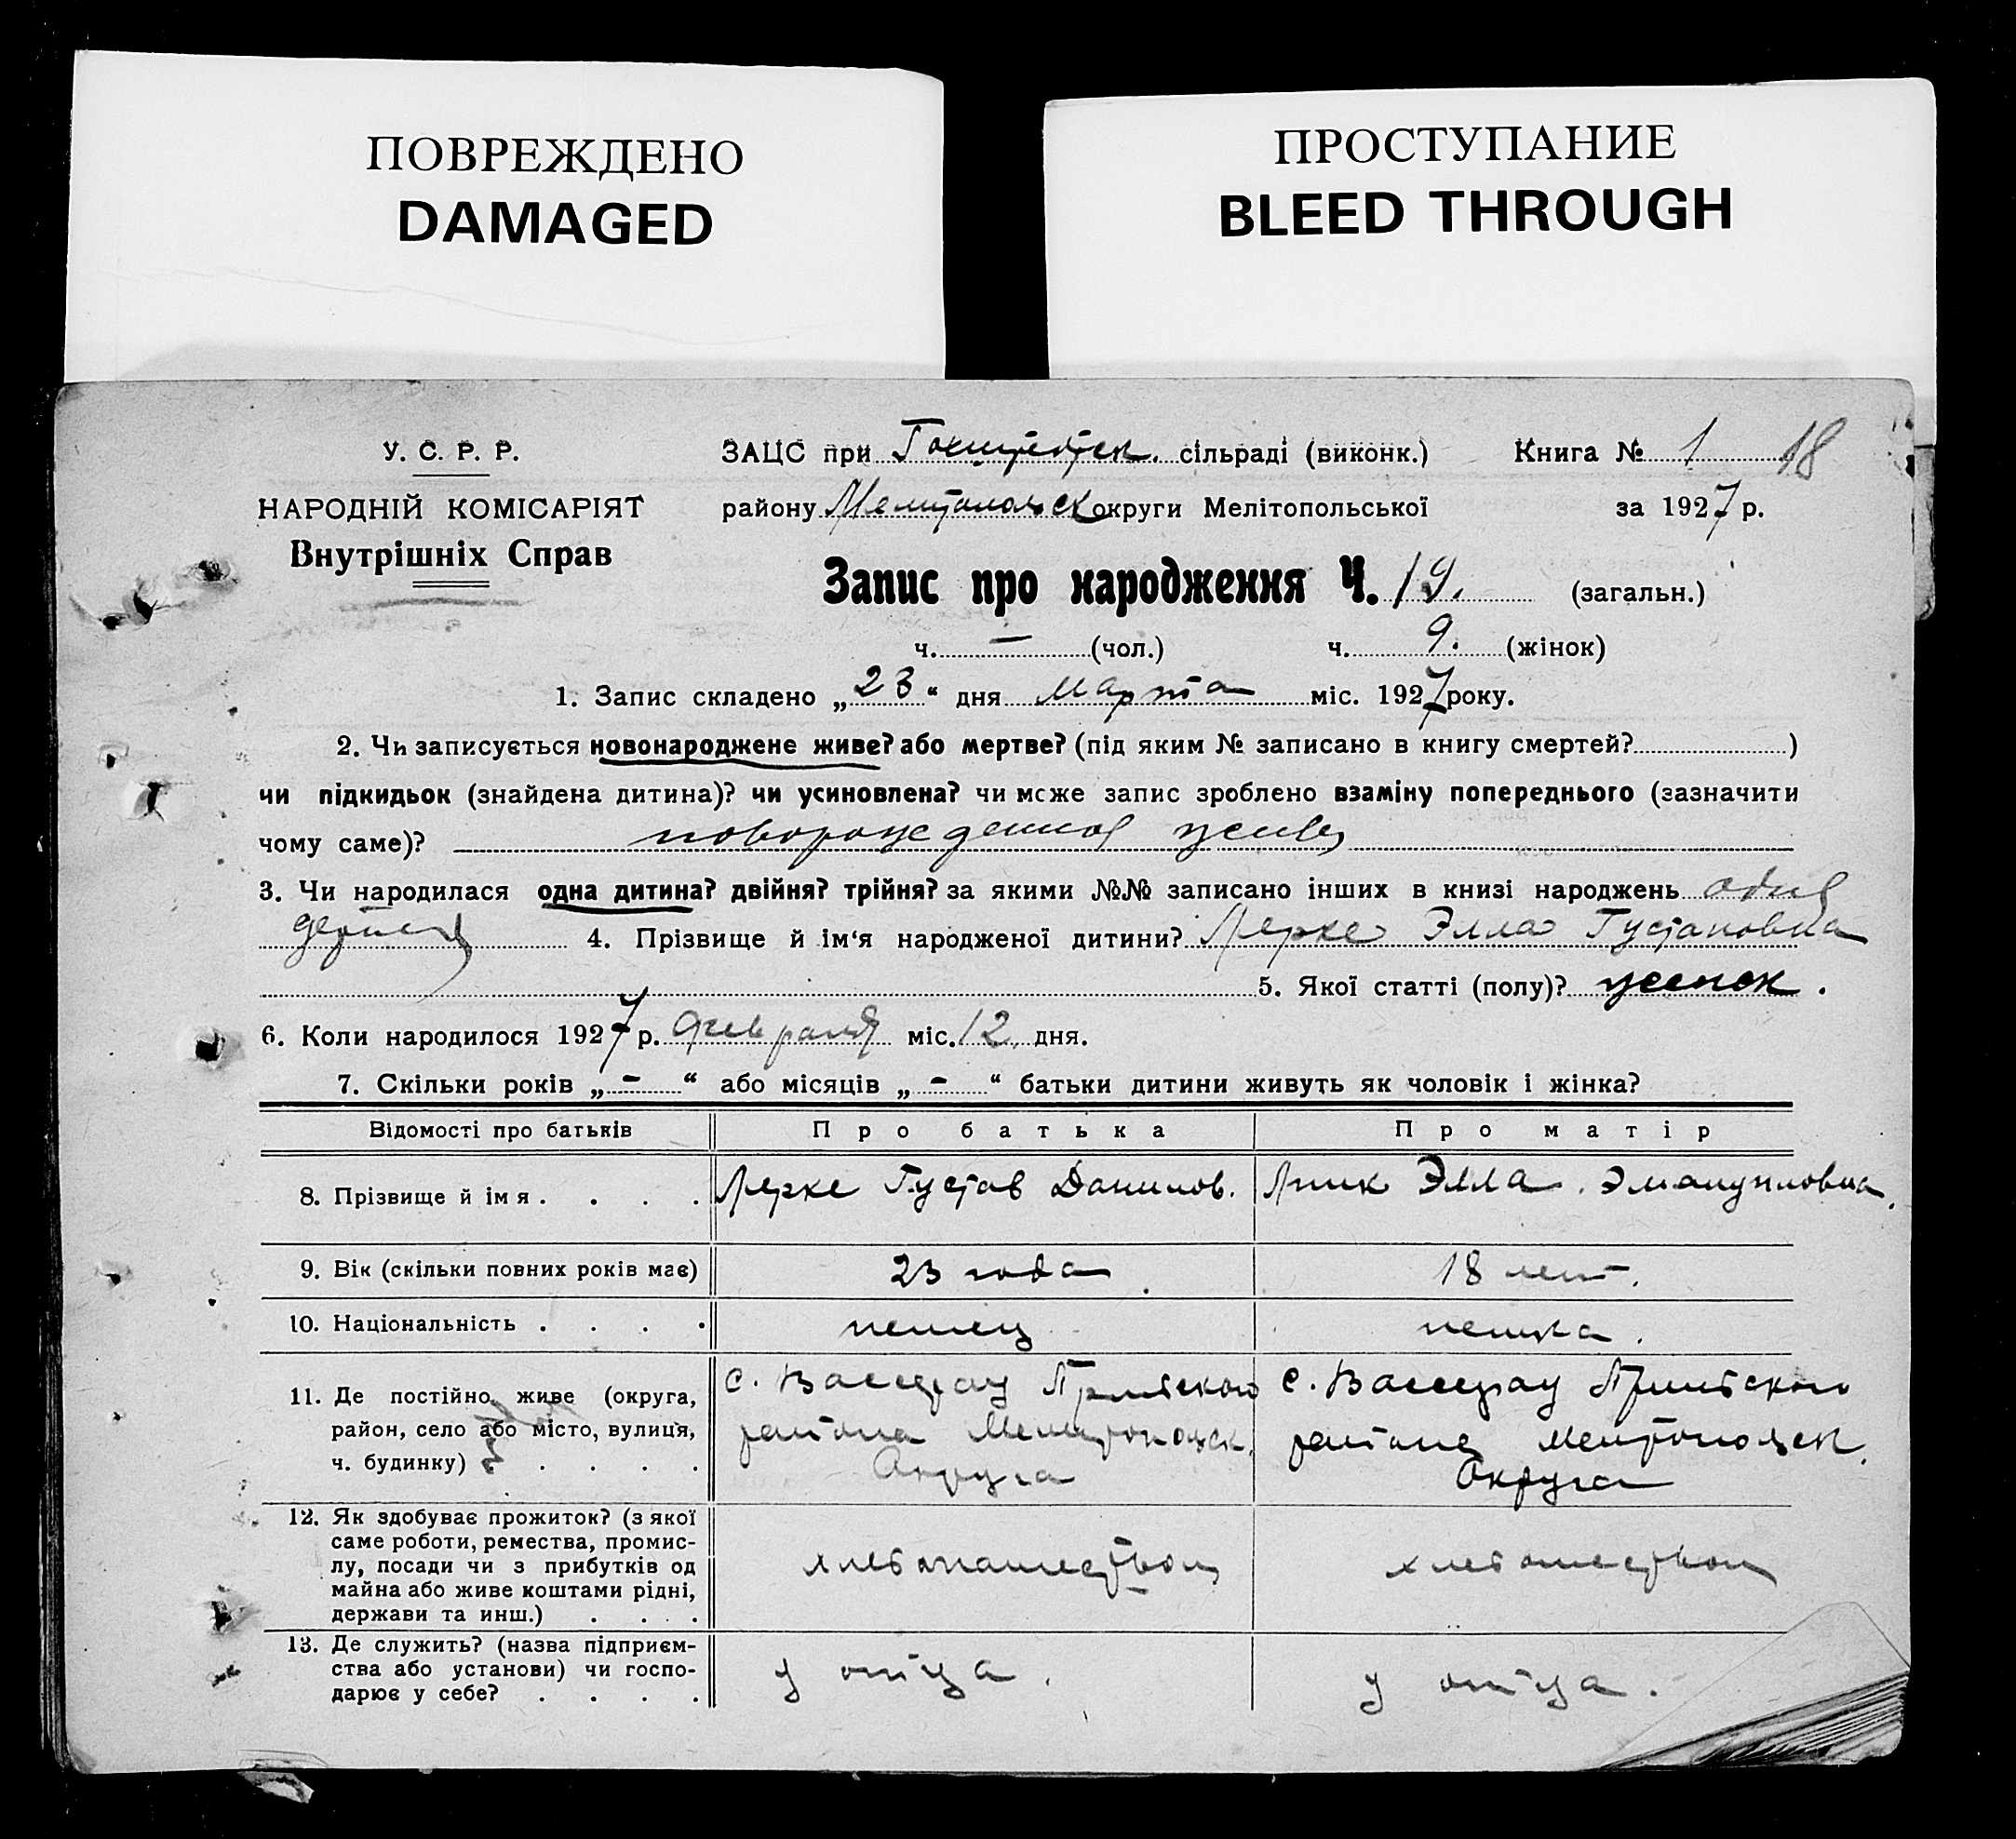 ПОВРЕЖДЕНО
DAMAGED
ПРОСТУПАНИЕ
BLEED THROUGH
У. С. Р. Р.
НАРОДНІЙ КОМІСАРІЯТ
Внутрішніх Справ
ЗАЦС при сільраді (виконк.) Книга № 1 18
району округи Мелітопольської за 1927 р.
Запис про народження Ч. 19. (загальн.)
ч. — (чол.) ч. 9. (жінок)
1. Запис складено „23“ дня марта міс. 1927 року.
2. Чи записується новонароджене живе? або мертве? (під яким № записано в книгу смертей? )
чи підкидьок (знайдена дитина)? чи усиновлена? чи може запис зроблено взаміну попереднього (зазначити
чому саме)?
3. Чи народилася одна дитина? двійня? трійня? за якими №№ записано інших в книзі народжень
4. Прізвище й ім'я народженої дитини? Лерке Элла Густавовна
5. Якої статті (полу)? женск.
6. Коли народилося 1927 р. февраля міс. 12 дня.
7. Скільки років „-“ або місяців „-“ батьки дитини живуть як чоловік і жінка?
Відомості про батьків Про батька Про матір
8. Прізвище й імя . . . . Лерке Густав Данилов. Элла Эмануиловна
9. Вік (скільки повних років має) 23 года 18 лет.
10. Національність . . . . немец немка.
11. Де постійно живе (округа,
район, село або місто, вулиця,
ч. будинку) . . . .
с. Вассерау Пришибского
района Мелитопольск.
Округа
с. Вассерау Пришибского
района Мелитопольск.
Округа
12. Як здобуває прожиток? (з якої
саме роботи, ремества, промис-
лу, посади чи з прибутків од
майна або живе коштами рідні,
держави та инш.) . . . .
хлебопашеством хлебопашеством
13. Де служить? (назва підприєм-
ства або установи) чи госпо-
дарює у себе? . . . .
у отца. у отца.